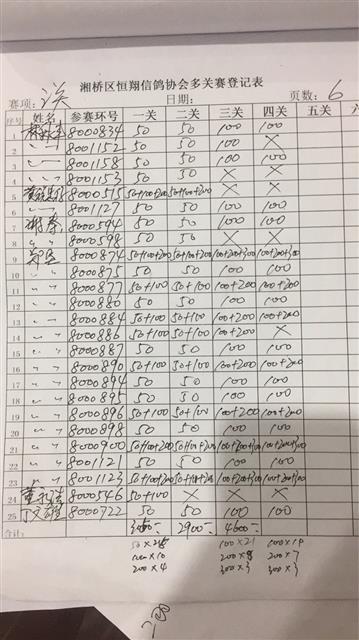 湘桥区恒翔信鸽协会多关赛登记表
赛项: 日期: 页数: 6
序号 姓名 参赛环号 一关 二关 三关 四关 五关 六
1 8000834 50 50 100 100
2 8001152 50 50 100 ×
3 8001158 50 50 100 100
4 8001153 50 50 × ×
5 8000515 50+100+200 50+100+200 × ×
6 8001127 50 50 100 100
7 8000594 50 50 100 100
8 8000598 50 50 × ×
9 8000874 50+100+200 50+100+200 100+200+300 100+200+300
10 8000875 50 50 100 100
11 8000877 50+100 50+100 100+200 100+200
12 8000880 50 50 100 100
13 8000884 50+100 50+100 100+200 100+200
14 8000886 50+100 50+100 100+200 ×
15 8000887 50 50 100 100
16 8000890 50+100 50+100 100+200 100+200
17 8000894 50 50 100 100
18 8000895 50 50 100 100
19 8000896 50+100 50+100 100+200 100+200
20 8000898 50 50 100 100
21 8000900 50+100+200 50+100+200 100+200+300 100+200+300
22 8001121 50 50 100 100
23 8001123 50+100+200 50+100+200 100+200+300 100+200+300
24 8000546 50+100 × × ×
25 8000722 50 50 100 100
合计: 2900- 4600-
100×21 100×19
100×10 200×8 200×7
200×4 300×3 300×3